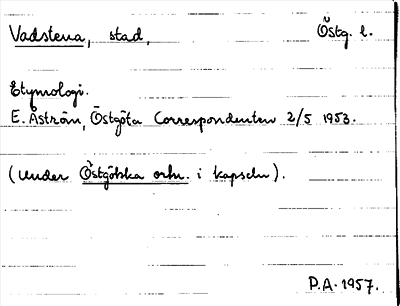 Vadstena, stad, Östg. l.
Etymologi.
E. Åström, Östgöta Correspondenten 2/5 1953.
(under Östgötska ortn. i kapseln).
P.A. 1957.